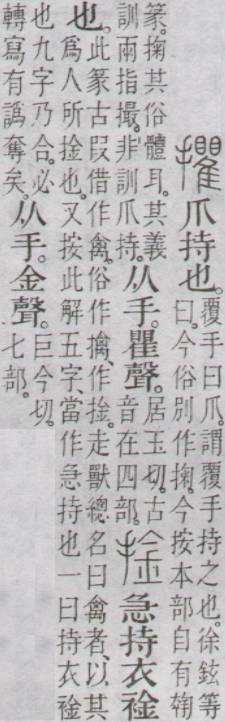 㩴爪持也。覆手曰爪。謂覆手持之也。徐鉉等曰。今俗別作掬。今按本部自有
篆。掬其俗體耳。其義訓兩指撮。非訓爪持。从手。瞿聲。居玉切。古音在四部。捦急持衣裣
也。此篆古叚借作禽。俗作擒、作捦。走獸緫名曰禽者、以其爲人所捦也。又按此解五字、當作急持也一曰持衣裣
也九字乃合。必轉寫有譌奪矣。从手。金聲。巨今切。七部。